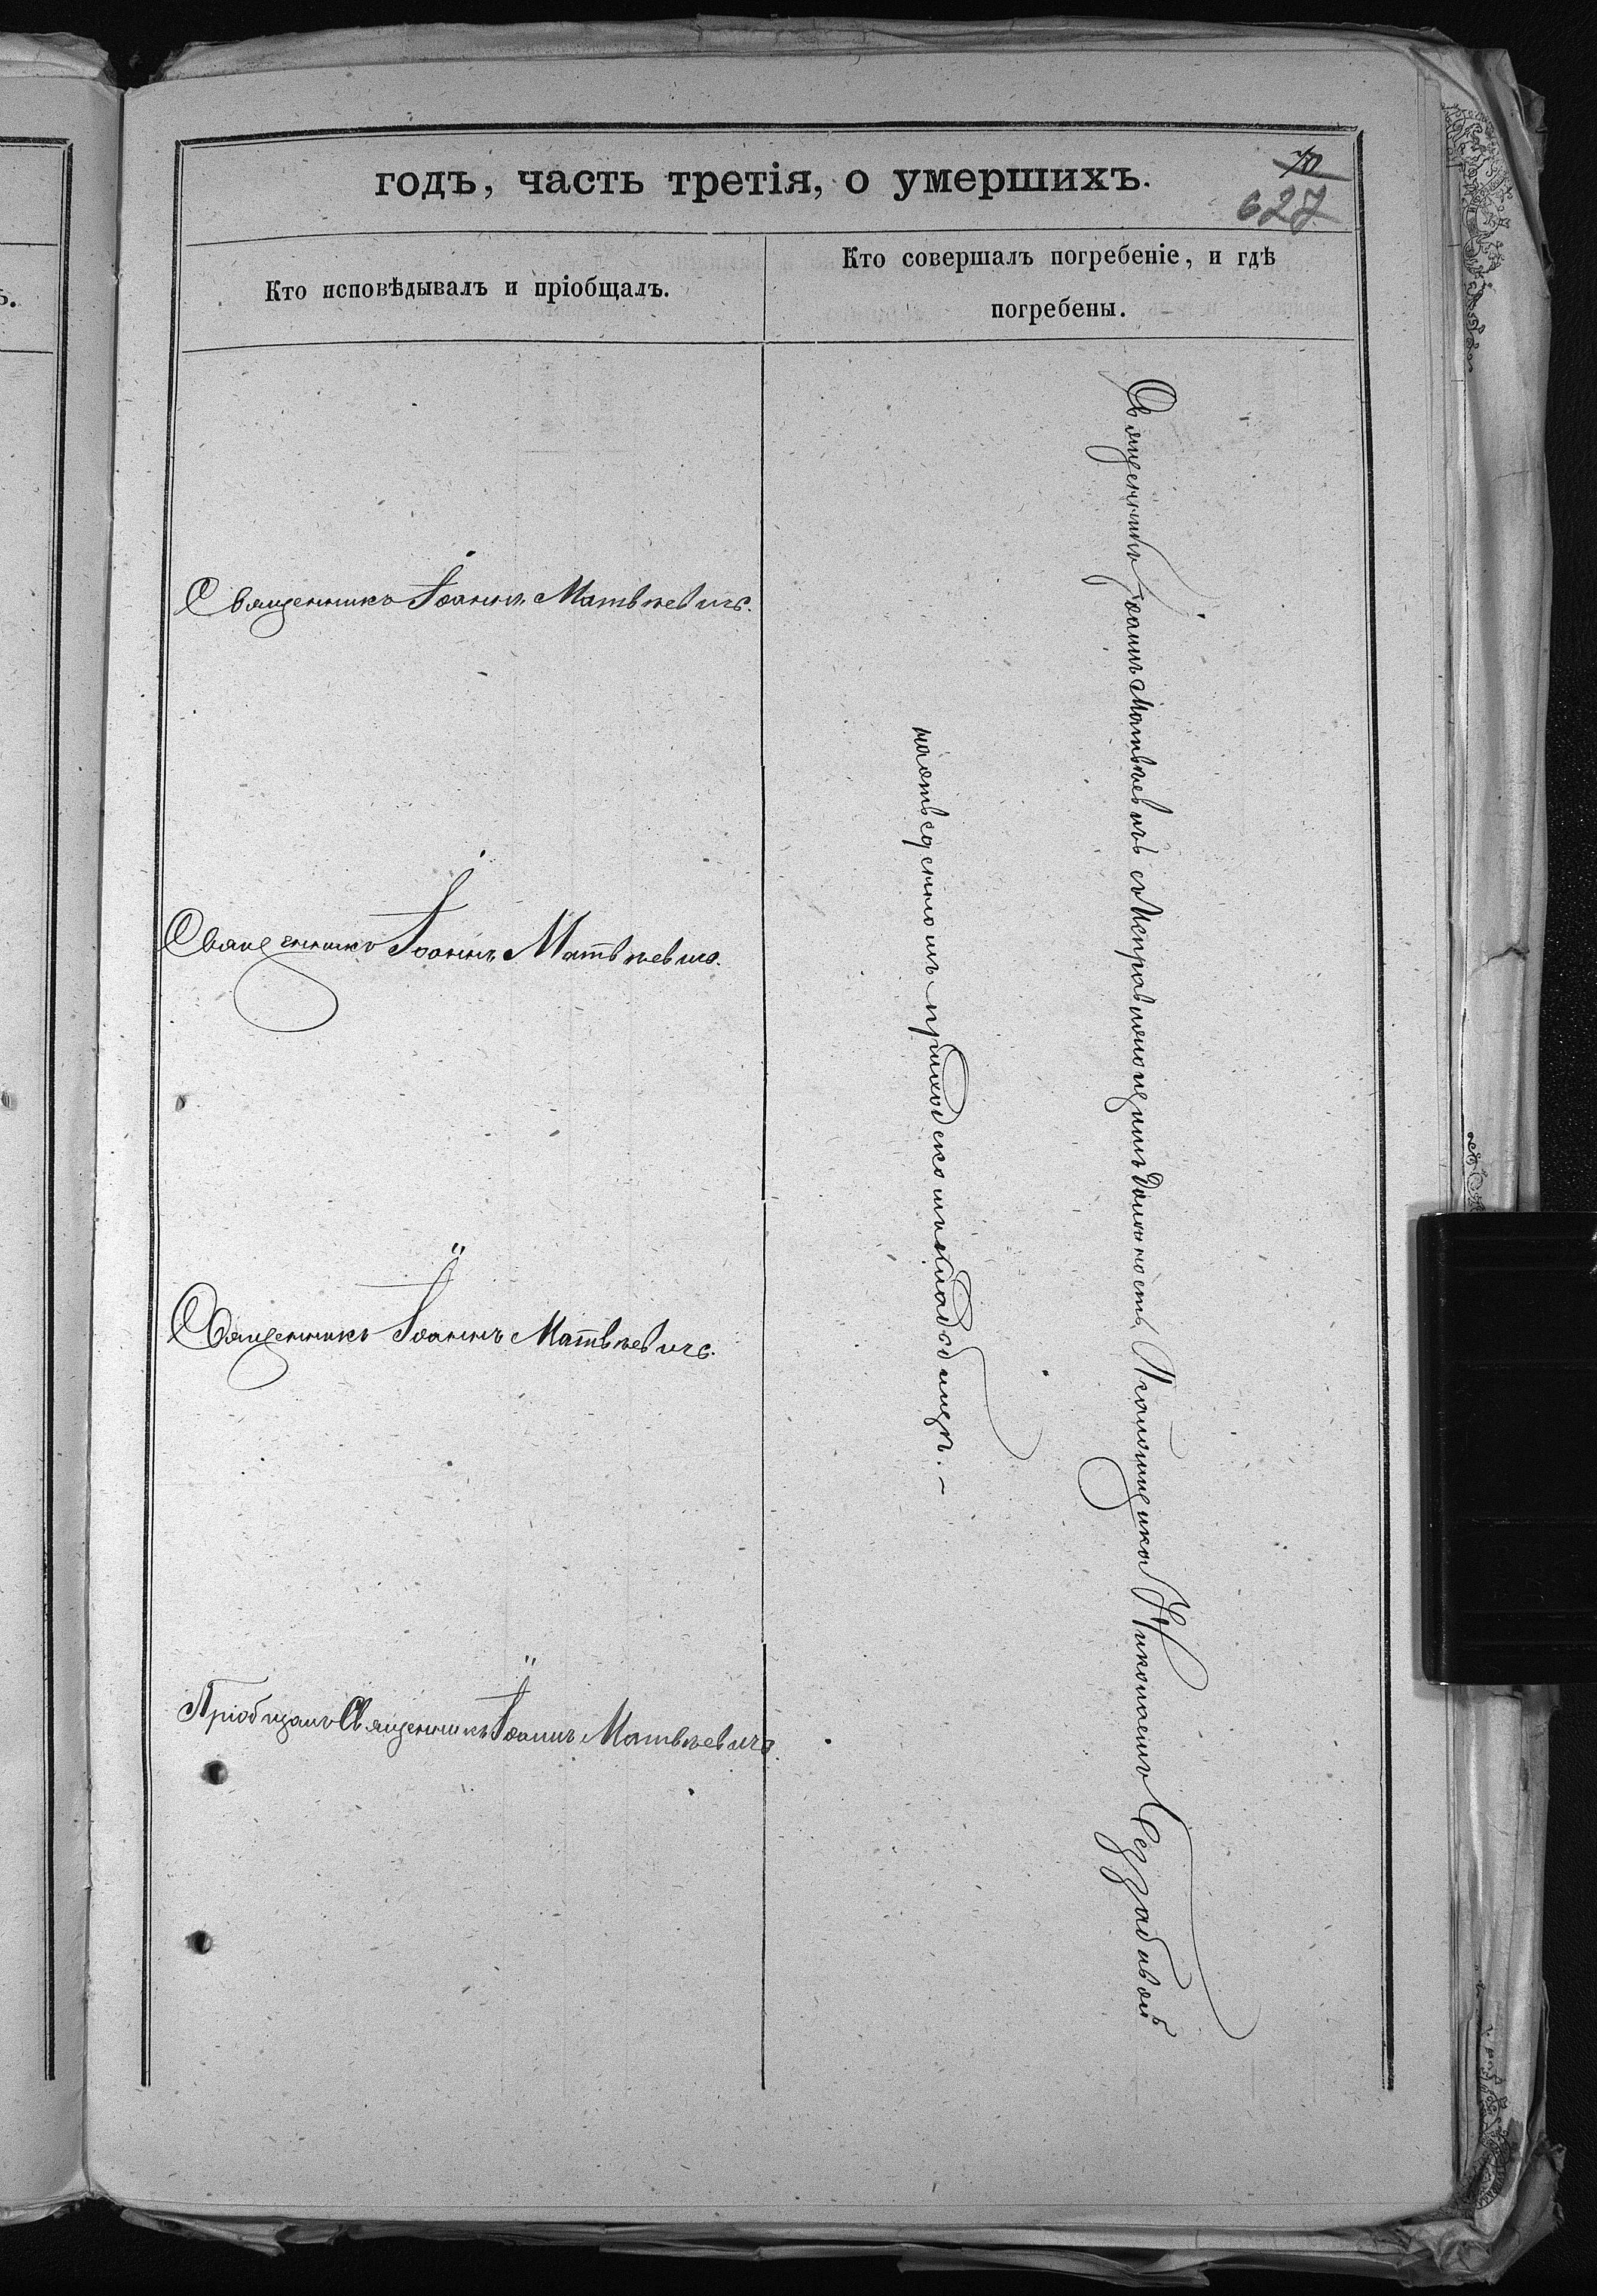 годъ, часть третія, о умершихъ.
70
627
Кто исповѣдывалъ и пріобщалъ.
Кто совершалъ погребеніе, и гдѣ
погребены.
Священникъ Іоаннъ Матвѣевичъ.
Священникъ Іоаннъ Матвѣевичъ.
Священникъ Іоаннъ Матвѣевичъ.
Пріобщалъ Священникъ Іоаннъ Матвѣевичъ.
Священникъ Іоаннъ Матвѣевичъ съ Исправляющимъ должность Псаломщика Николаемъ
на отведенномъ приходскомъ кладбищѣ. –